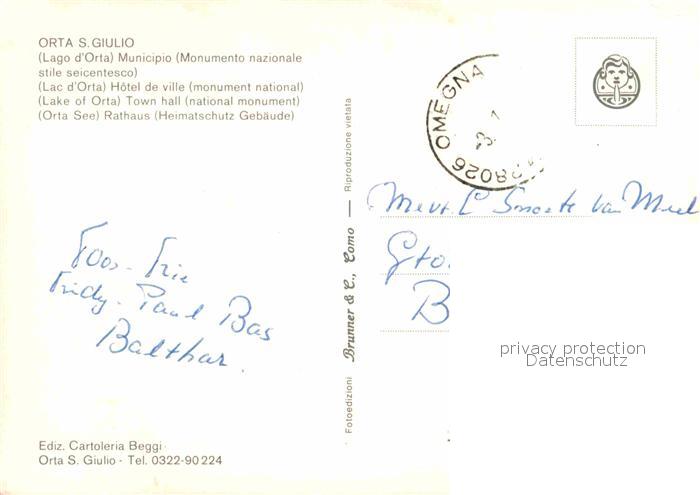 ORTA S. GIULIO
(Lago d'Orta) Municipio (Monumento nazionale
stile seicentesco)
(Lac d'Orta) Hôtel de ville (monument national)
(Lake of Orta) Town hall (national monument)
(Orta See) Rathaus (Heimatschutz Gebäude)
Paul Bas
Balthar.
Ediz. Cartoleria Beggi
Orta S. Giulio - Tel. 0322-90224
Fotoedizioni Brunner & C., Como — Riproduzione vietata
28026 OMEGNA
Mevr. L
Gto.
B
privacy protection
Datenschutz